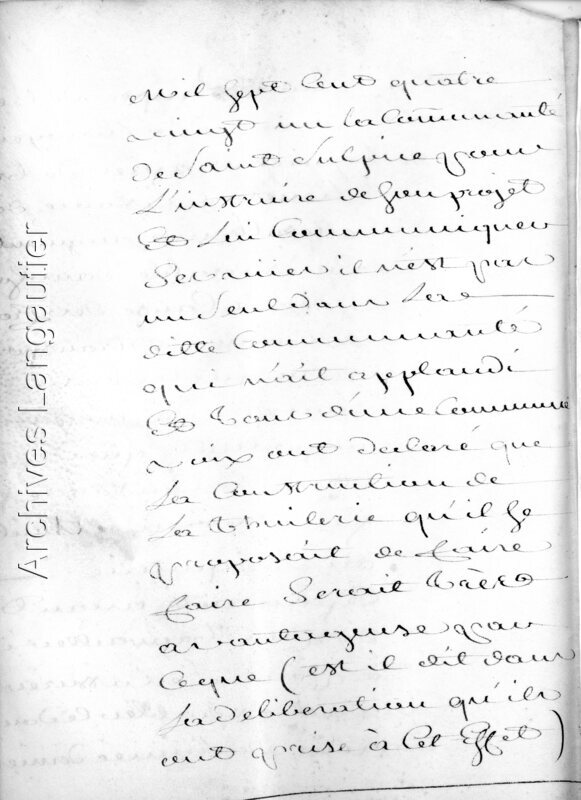 Mil Sept Cent quatre
vingt un la Communauté
de Saint Sulpice pour
L'instruire de Son projet
Et Lui Communiquer
Ses vües il n'est pas
un Seul dans La
ditte Communauté
qui n'ait applaudi
Et tous d'une Commune
voix ont declaré que
La Construction de
La thuilerie qu'il Se
proposait de faire
faire Serait très
avantageuse par
Ceque (est il dit dans
La deliberation qu'ils
ont prise à Cet Effet)
Archives Langautier